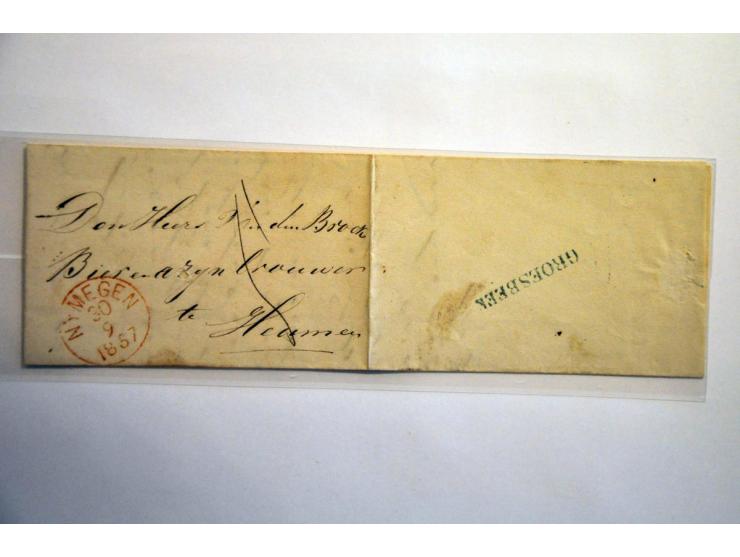 Den Heere V. den Broek
Bier en azyn brouwer
te Heumen
NYMEGEN
30
9
1867
GROESBEEK